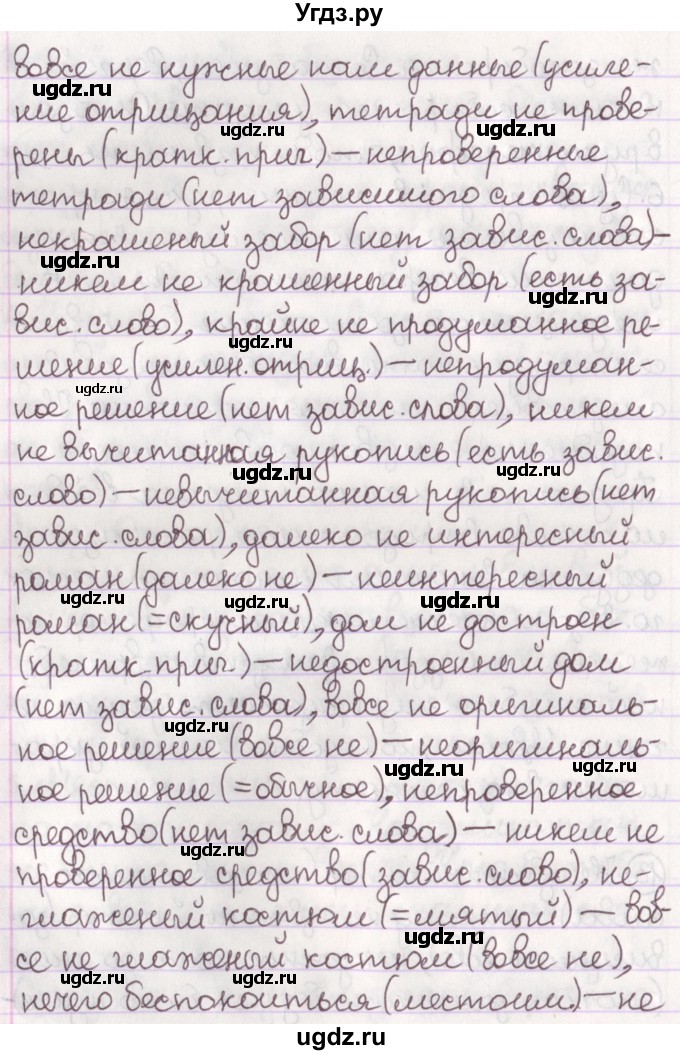 Угдз.ру
вовсе не нужные нам данные (усиле-
ние отрицания), тетради не прове-
рены (кратк. прич.) – непроверенные
тетради (нет зависимого слова),
некрашеный забор (нет завис. слова) –
никем не крашенный забор (есть за-
вис. слово), крайне не продуманное ре-
шение (усилен. отриц.) – непродуман-
ное решение (нет завис. слова), никем
не вычитанная рукопись (есть завис.
слово) – невычитанная рукопись (нет
завис. слова), далеко не интересный
роман (далеко не) – неинтересный
роман (=скучный), дом не достроен
(кратк. прич.) – недостроенный дом
(нет завис. слова), вовсе не оригиналь-
ное решение (вовсе не) – неоригиналь-
ное решение (=обычное), непроверенное
средство (нет завис. слова) – никем не
проверенное средство (завис. слово), не-
глаженый костюм (=мятый) – вов-
се не глаженый костюм (вовсе не),
нечего беспокоиться (местоим.) – не
ugdz.ru